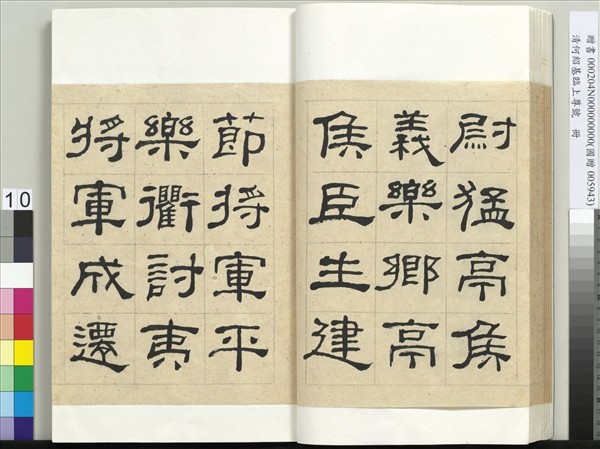 尉猛亭侯
義樂鄉亭
侯臣生建
節將軍平
樂衢討夷
將軍成遷
贈書 000204N000000000(國贈 005943)
清何紹基臨上尊號 冊
10